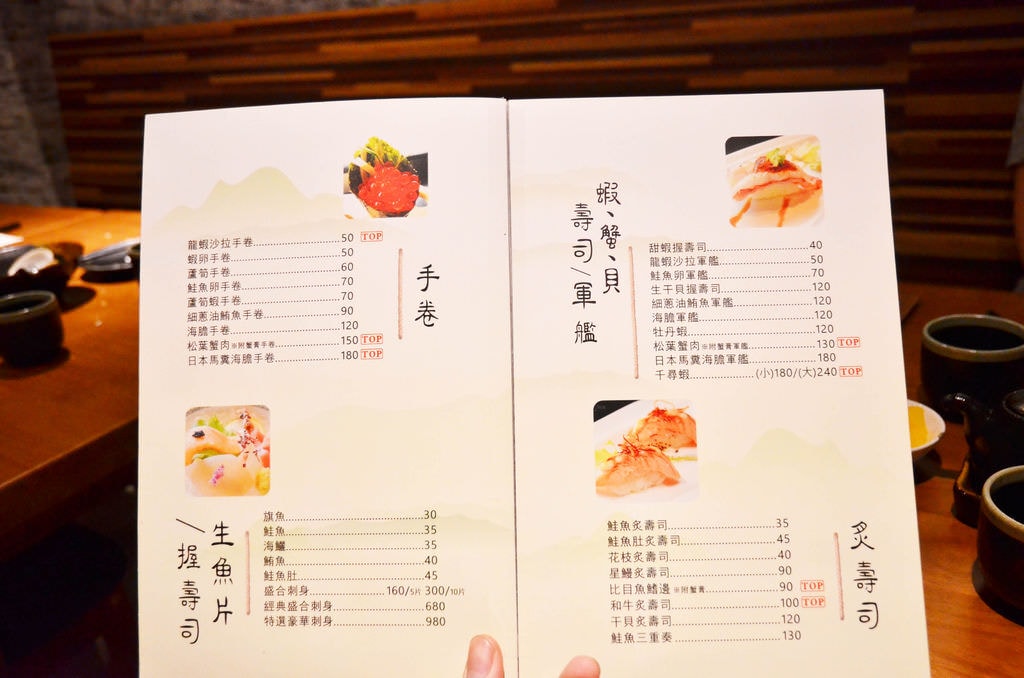 手卷
龍蝦沙拉手卷 50 TOP
蝦卵手卷 50
蘆筍手卷 60
鮭魚卵手卷 70
蘆筍蝦手卷 70
細蔥油鮪魚手卷 90
海膽手卷 120
松葉蟹肉※附蟹膏手卷 150 TOP
日本馬糞海膽手卷 180 TOP
生魚片
/握壽司
旗魚 30
鮭魚 35
海鱺 35
鮪魚 40
鮭魚肚 45
盛合刺身 160/5片 300/10片
經典盛合刺身 680
特選豪華刺身 980
蝦、蟹、貝
壽司/軍艦
甜蝦握壽司 40
龍蝦沙拉軍艦 50
鮭魚卵軍艦 70
生干貝握壽司 120
細蔥油鮪魚軍艦 120
海膽軍艦 120
牡丹蝦 120
松葉蟹肉※附蟹膏軍艦 130 TOP
日本馬糞海膽軍艦 180
千尋蝦 (小)180/(大)240 TOP
炙壽司
鮭魚炙壽司 35
鮭魚肚炙壽司 45
花枝炙壽司 40
星鰻炙壽司 90
比目魚鰭邊※附蟹膏 90 TOP
和牛炙壽司 100 TOP
干貝炙壽司 120
鮭魚三重奏 130